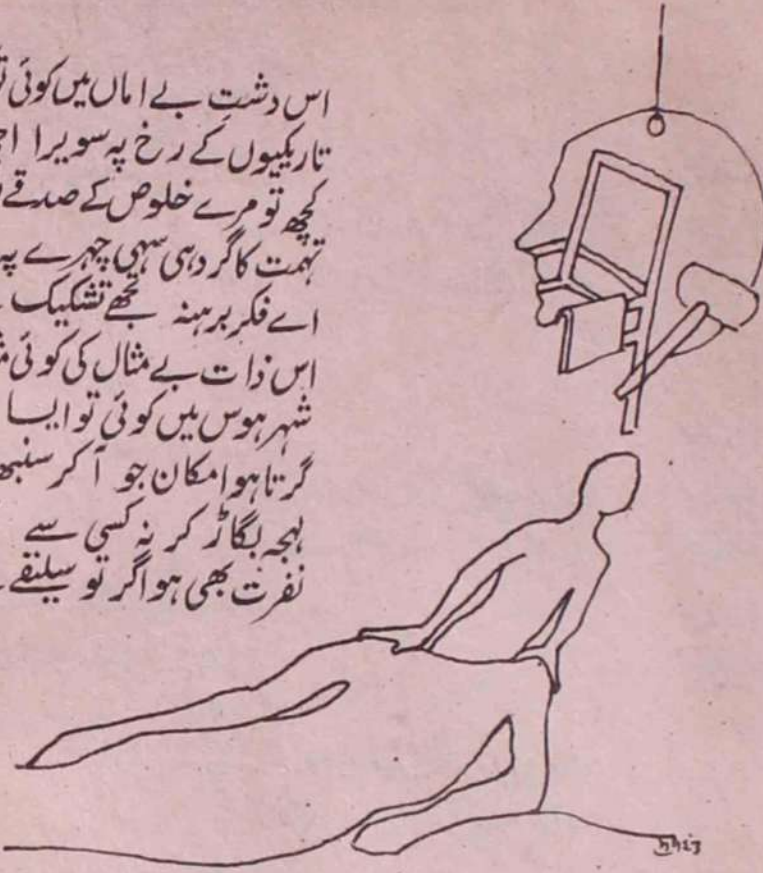 اس دشتِ بے اماں میں کوئی
تاریکیوں کے رخ پہ سویرا
کچھ تو مرے خلوص کے صدقے
تہمت کا گرد ہی سہی چہرے پہ
اے فکر برہنہ تجھے تشکیک
اس ذات بے مثال کی کوئی
شہر ہوس میں کوئی تو ایسا
گرتا ہوا مکان جو آ کر
لہجہ بگاڑ کر نہ کسی سے
نفرت بھی ہو اگر تو سلیقے